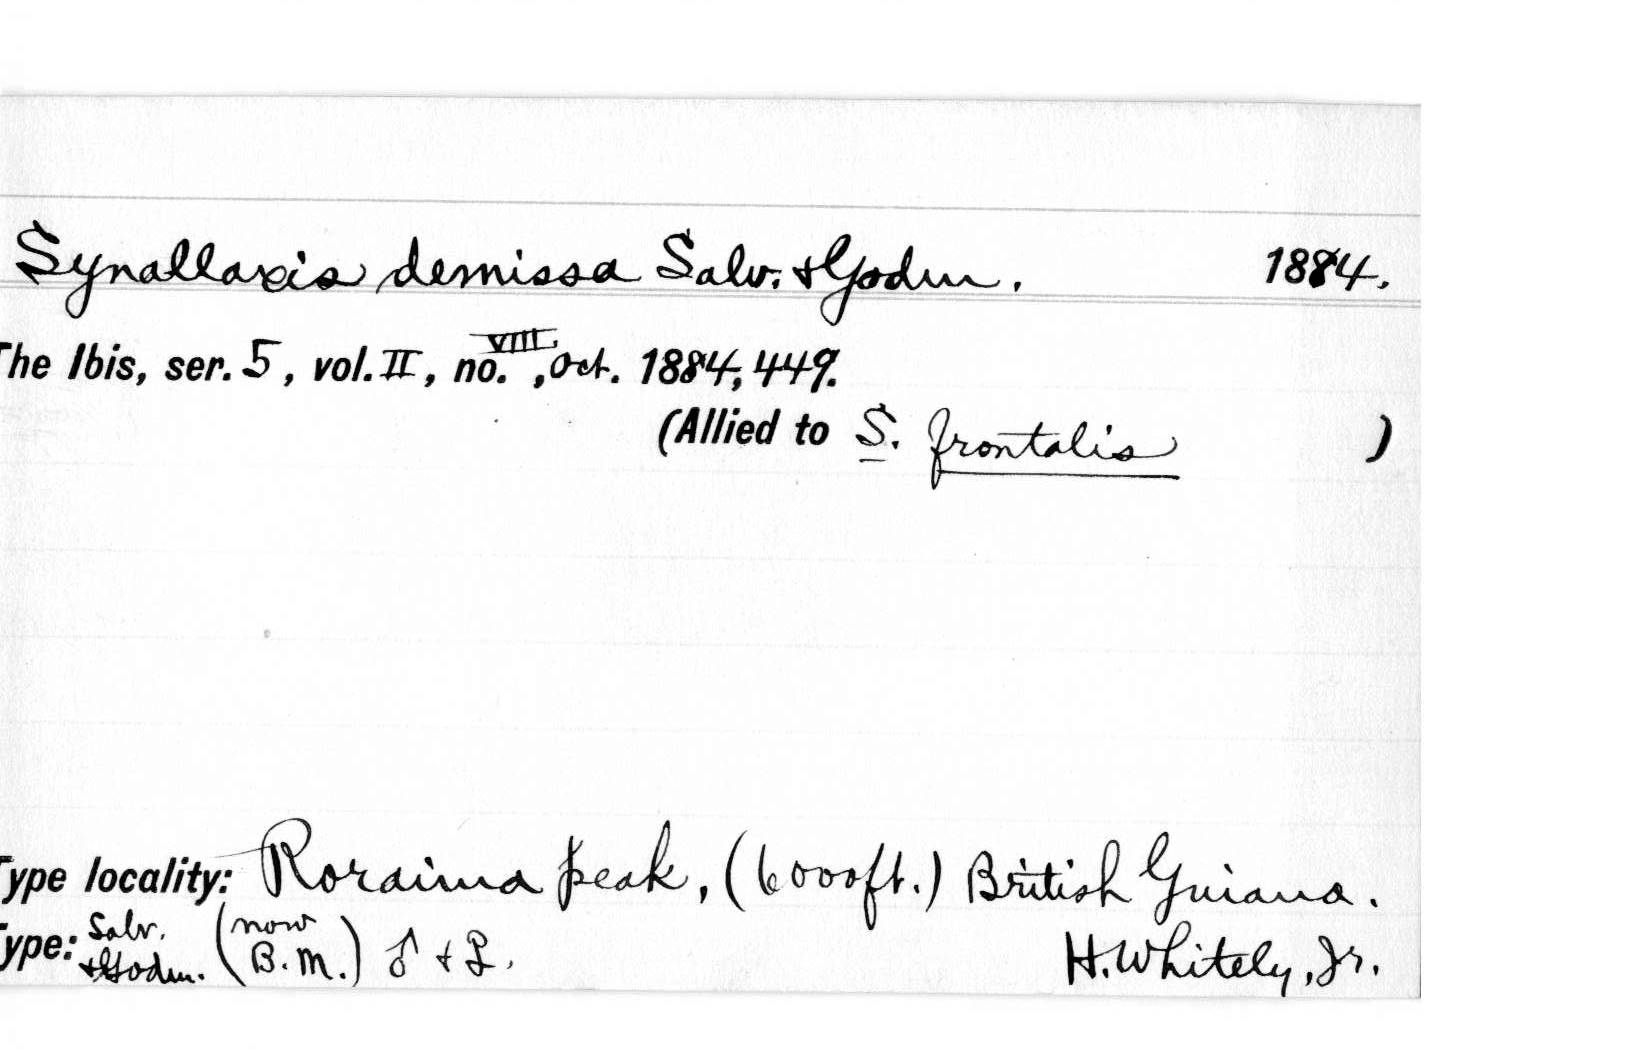 Synallaxis demissa Salv. & Godm. 1884.
The Ibis, ser. 5, vol. II, no. VIII, Oct. 1884, 449.
(Allied to S. frontalis )
Type locality: Roraima peak, (6000ft.) British Guiana.
Type: Salv. & Godm. (now B.M.) ♂ + ♀. H. Whitely, Jr.